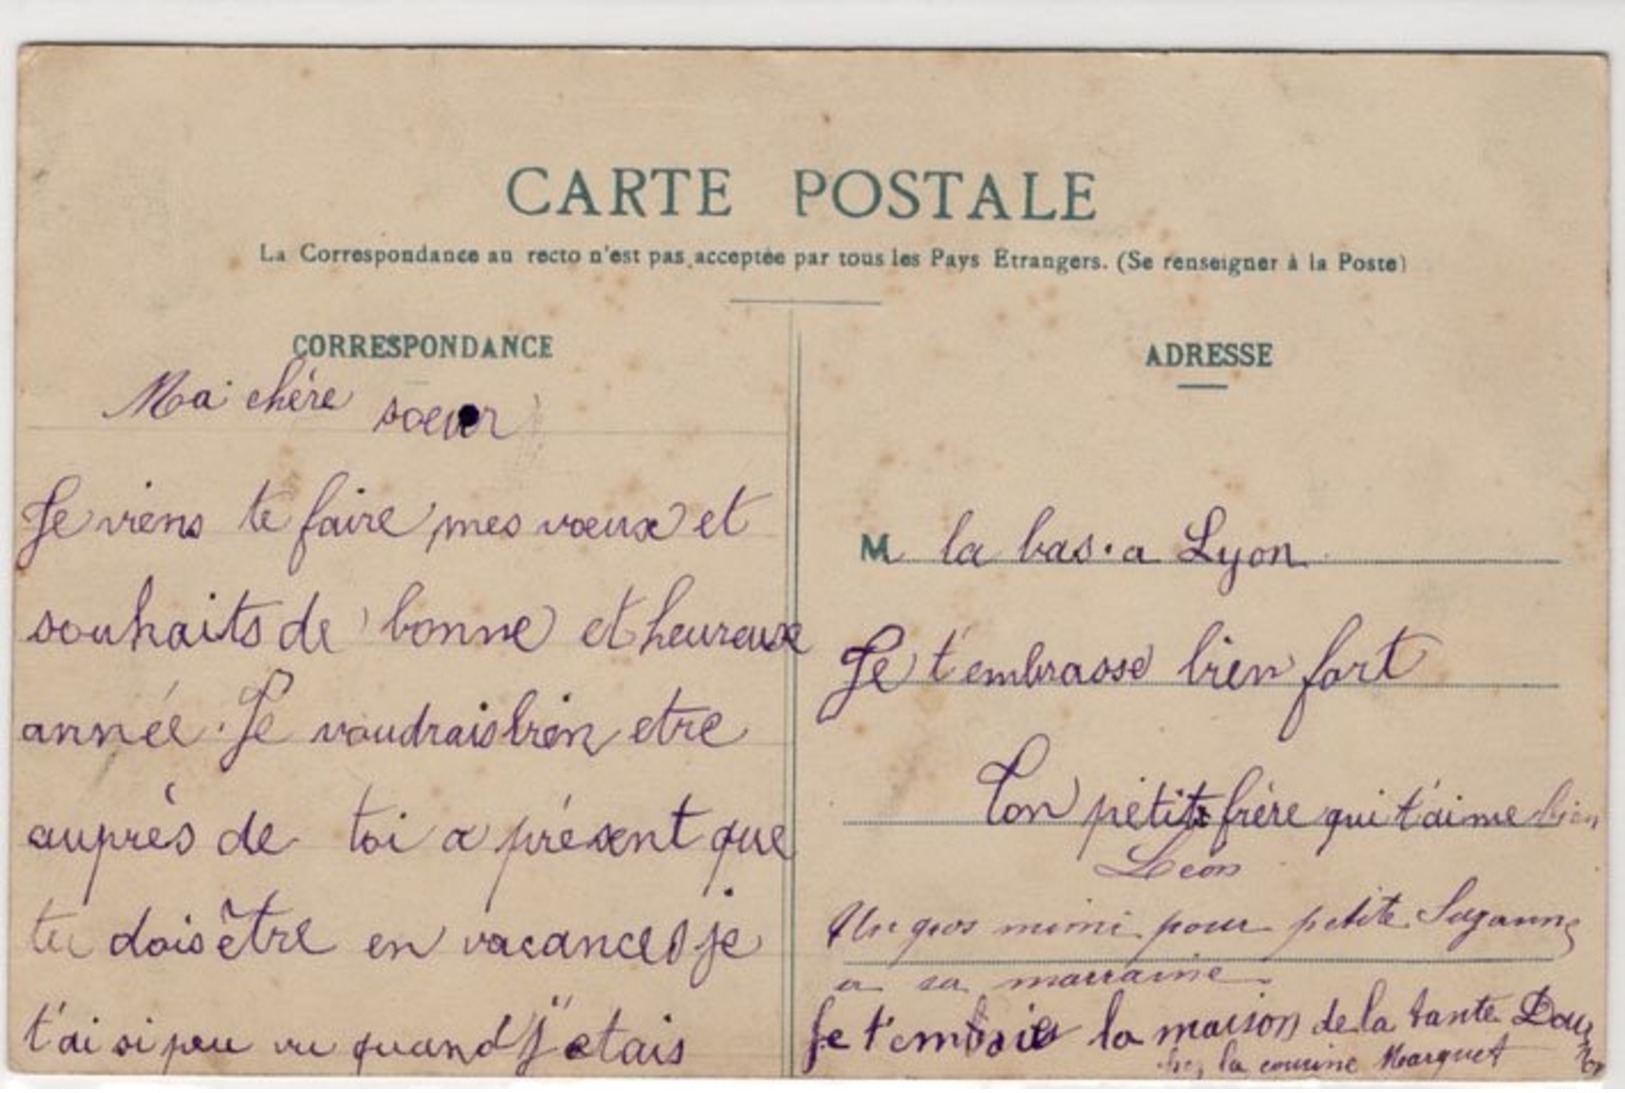 CARTE POSTALE
La Correspondance au recto n'est pas acceptée par tous les Pays Etrangers. (Se renseigner à la Poste)
CORRESPONDANCE
Ma chère soeur
Je viens te faire mes voeux et
souhaits de bonne et heureuse
année. Je voudrais bien etre
auprès de toi a présent que
tu dois être en vacances je
t'ai si peu vu quand j'etais
ADRESSE
M la bas. a Lyon
Je t'embrasse bien fort
Ton petit frère qui t'aime bien
Leon
Un gros mimi pour petite Suzanne
a sa marraine
Je la maison de la tante
chez la cousine Marquet